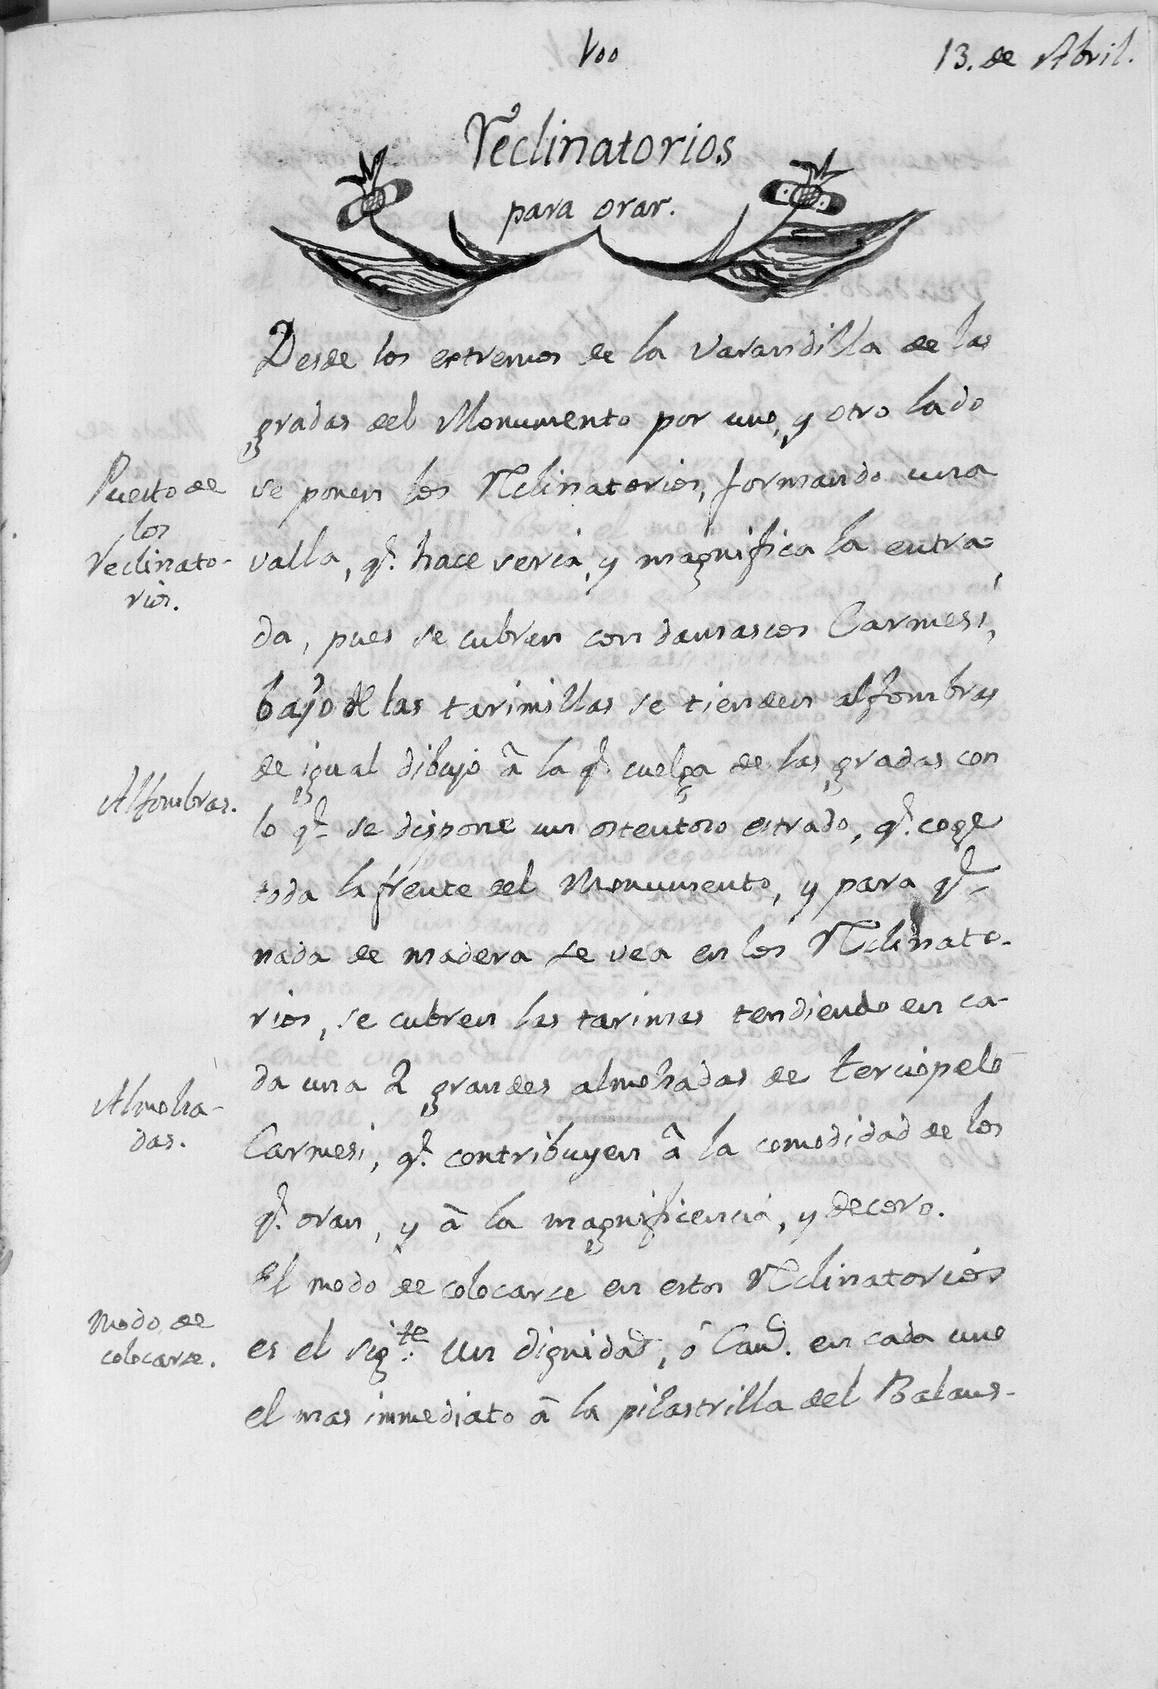 100
13. de Abril.
Reclinatorios
para orar.
Desde los extremos de la Varandilla de las
gradas del Monumento por uno, y otro lado
Puesto de
los
Reclinato-
rios.
se ponen los Reclinatorios, formando una
valla, q.ͤ hace seria, y magnifica la entra-
da, pues se cubren con damascos Carmesi,
bajo de las tarimillas se tienden alfombras
Alfombras.
de igual dibujo â la q.ͤ cuelga de las gradas con
lo q.ͤ se dispone un ostentoso estrado, q.ͤ coge
toda la frente del Monumento, y para q.ͤ
nada de madera se vea en los Reclinato-
rios, se cubren las tarimas tendiendo en ca-
Almoha-
das.
da una 2 grandes almohadas de terciopelo
Carmesi, q.ͤ contribuyen â la comodidad de los
q.ͤ oran, y â la magnificencia, y decoro.
Modo de
colocarse.
El modo de colocarse en estos Reclinatorios
es el sig.te Un dignidad, ó Can.º en cada uno
el mas immediato â la pilastrilla del Balaus-